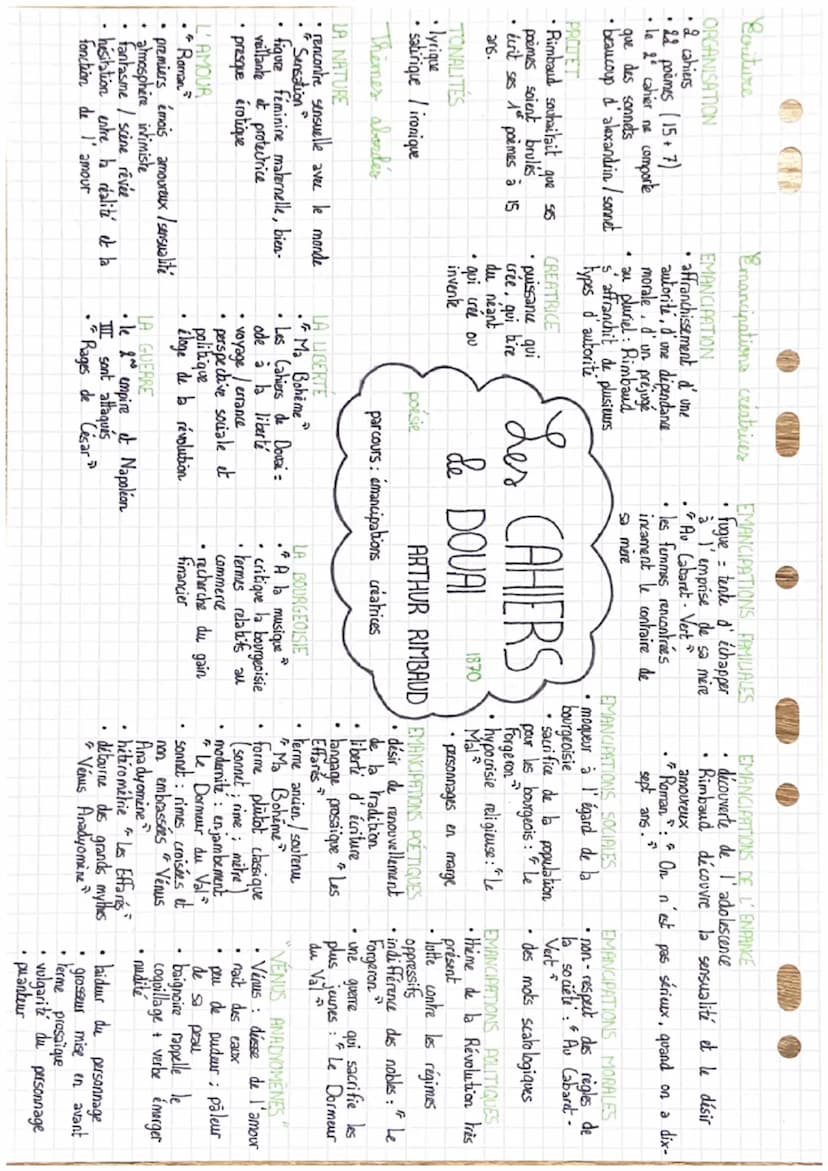 Ecriture
ORGANISATION
• 2 cahiers
• 22 poèmes (15 + 7)
• le 2e cahier ne comporte
que des sonnets
• beaucoup d'alexandrin / sonnet
PROJET
• Rimbaud souhaitait que ses
poèmes soient brulés
• écrit ses 1er poèmes à 15
ans.
TONALITÉS
• lyrique
• satirique / ironique
Emancipations créatrices
EMANCIPATION
• affranchissement d'une
autorité, d'une dépendance
morale, d'un préjugé
• au pluriel : Rimbaud
s'affranchit de plusieurs
types d'autorité
CREATRICE
• puissance qui
crée, qui tire
du néant
• qui crée ou
invente
EMANCIPATIONS FAMILIALES
• fugue = tente d'échapper
à l'emprise de sa mère
• "Au Cabaret-Vert"
• les femmes rencontrées
incarnent le contraire de
sa mère
EMANCIPATIONS DE L'ENFANCE
• découverte de l'adolescence
• Rimbaud découvre la sensualité et le désir
amoureux
• "Roman" : "On n'est pas sérieux, quand on a dix-
sept ans."
EMANCIPATIONS SOCIALES
• moqueur à l'égard de la
bourgeoisie
• sacrifice de la population
pour les bourgeois : "Le
Forgeron"
• hypocrisie religieuse : "Le
Mal"
• personnages en marge
EMANCIPATIONS MORALES
• non-respect des règles de
la société : "Au Cabaret-
Vert"
• des mots scatologiques
Les CAHIERS
de DOUAI
1870
poésie
ARTHUR RIMBAUD
parcours : émancipations créatrices
EMANCIPATIONS POÉTIQUES
• désir de renouvellement
de la tradition
• liberté d'écriture
• langage prosaïque "Les
Effarés"
• terme ancien / soutenu
"Ma Bohème"
• forme plutôt classique
(sonnet ; rime ; mètre)
• modernité : enjambement
"Le Dormeur du Val"
• sonnet : rimes croisées et
non embrassées "Vénus
Anadyomène"
• hétérométrie "Les Effarés"
• détourne des grands mythes
"Vénus Anadyomène"
EMANCIPATIONS POLITIQUES
• thème de la Révolution très
présent
• lutte contre les régimes
oppressifs
• indifférence des nobles : "Le
Forgeron"
• une guerre qui sacrifie les
plus jeunes : "Le Dormeur
du Val"
Thèmes abordés
LA NATURE
• rencontre sensuelle avec le monde
• "Sensation"
• figure féminine maternelle, bien-
veillante et protectrice
• presque érotique
L'AMOUR
• "Roman"
• premiers émois amoureux / sensualité
• atmosphère intimiste
• fantasme / scène rêvée
• hésitation entre la réalité et la
fonction de l'amour
LA LIBERTÉ
• "Ma Bohème"
• Les Cahiers de Douai =
ode à la liberté
• voyage / errance
• perspective sociale et
politique
• éloge de la révolution
LA GUERRE
• le 2nd empire et Napoléon
III sont attaqués
• "Rages de César"
LA BOURGEOISIE
• "A la musique"
• critique la bourgeoisie
• termes relatifs au
commerce
• recherche du gain
financier
"VÉNUS ANADYOMÈNES"
• Vénus : déesse de l'amour
• nait des eaux
• peu de pudeur ; pâleur
de sa peau
• baignoire rappelle le
coquillage + verbe émerger
• nudité
• laideur du personnage
• grosseur mise en avant
• terme prosaïque
• vulgarité du personnage
• puanteur